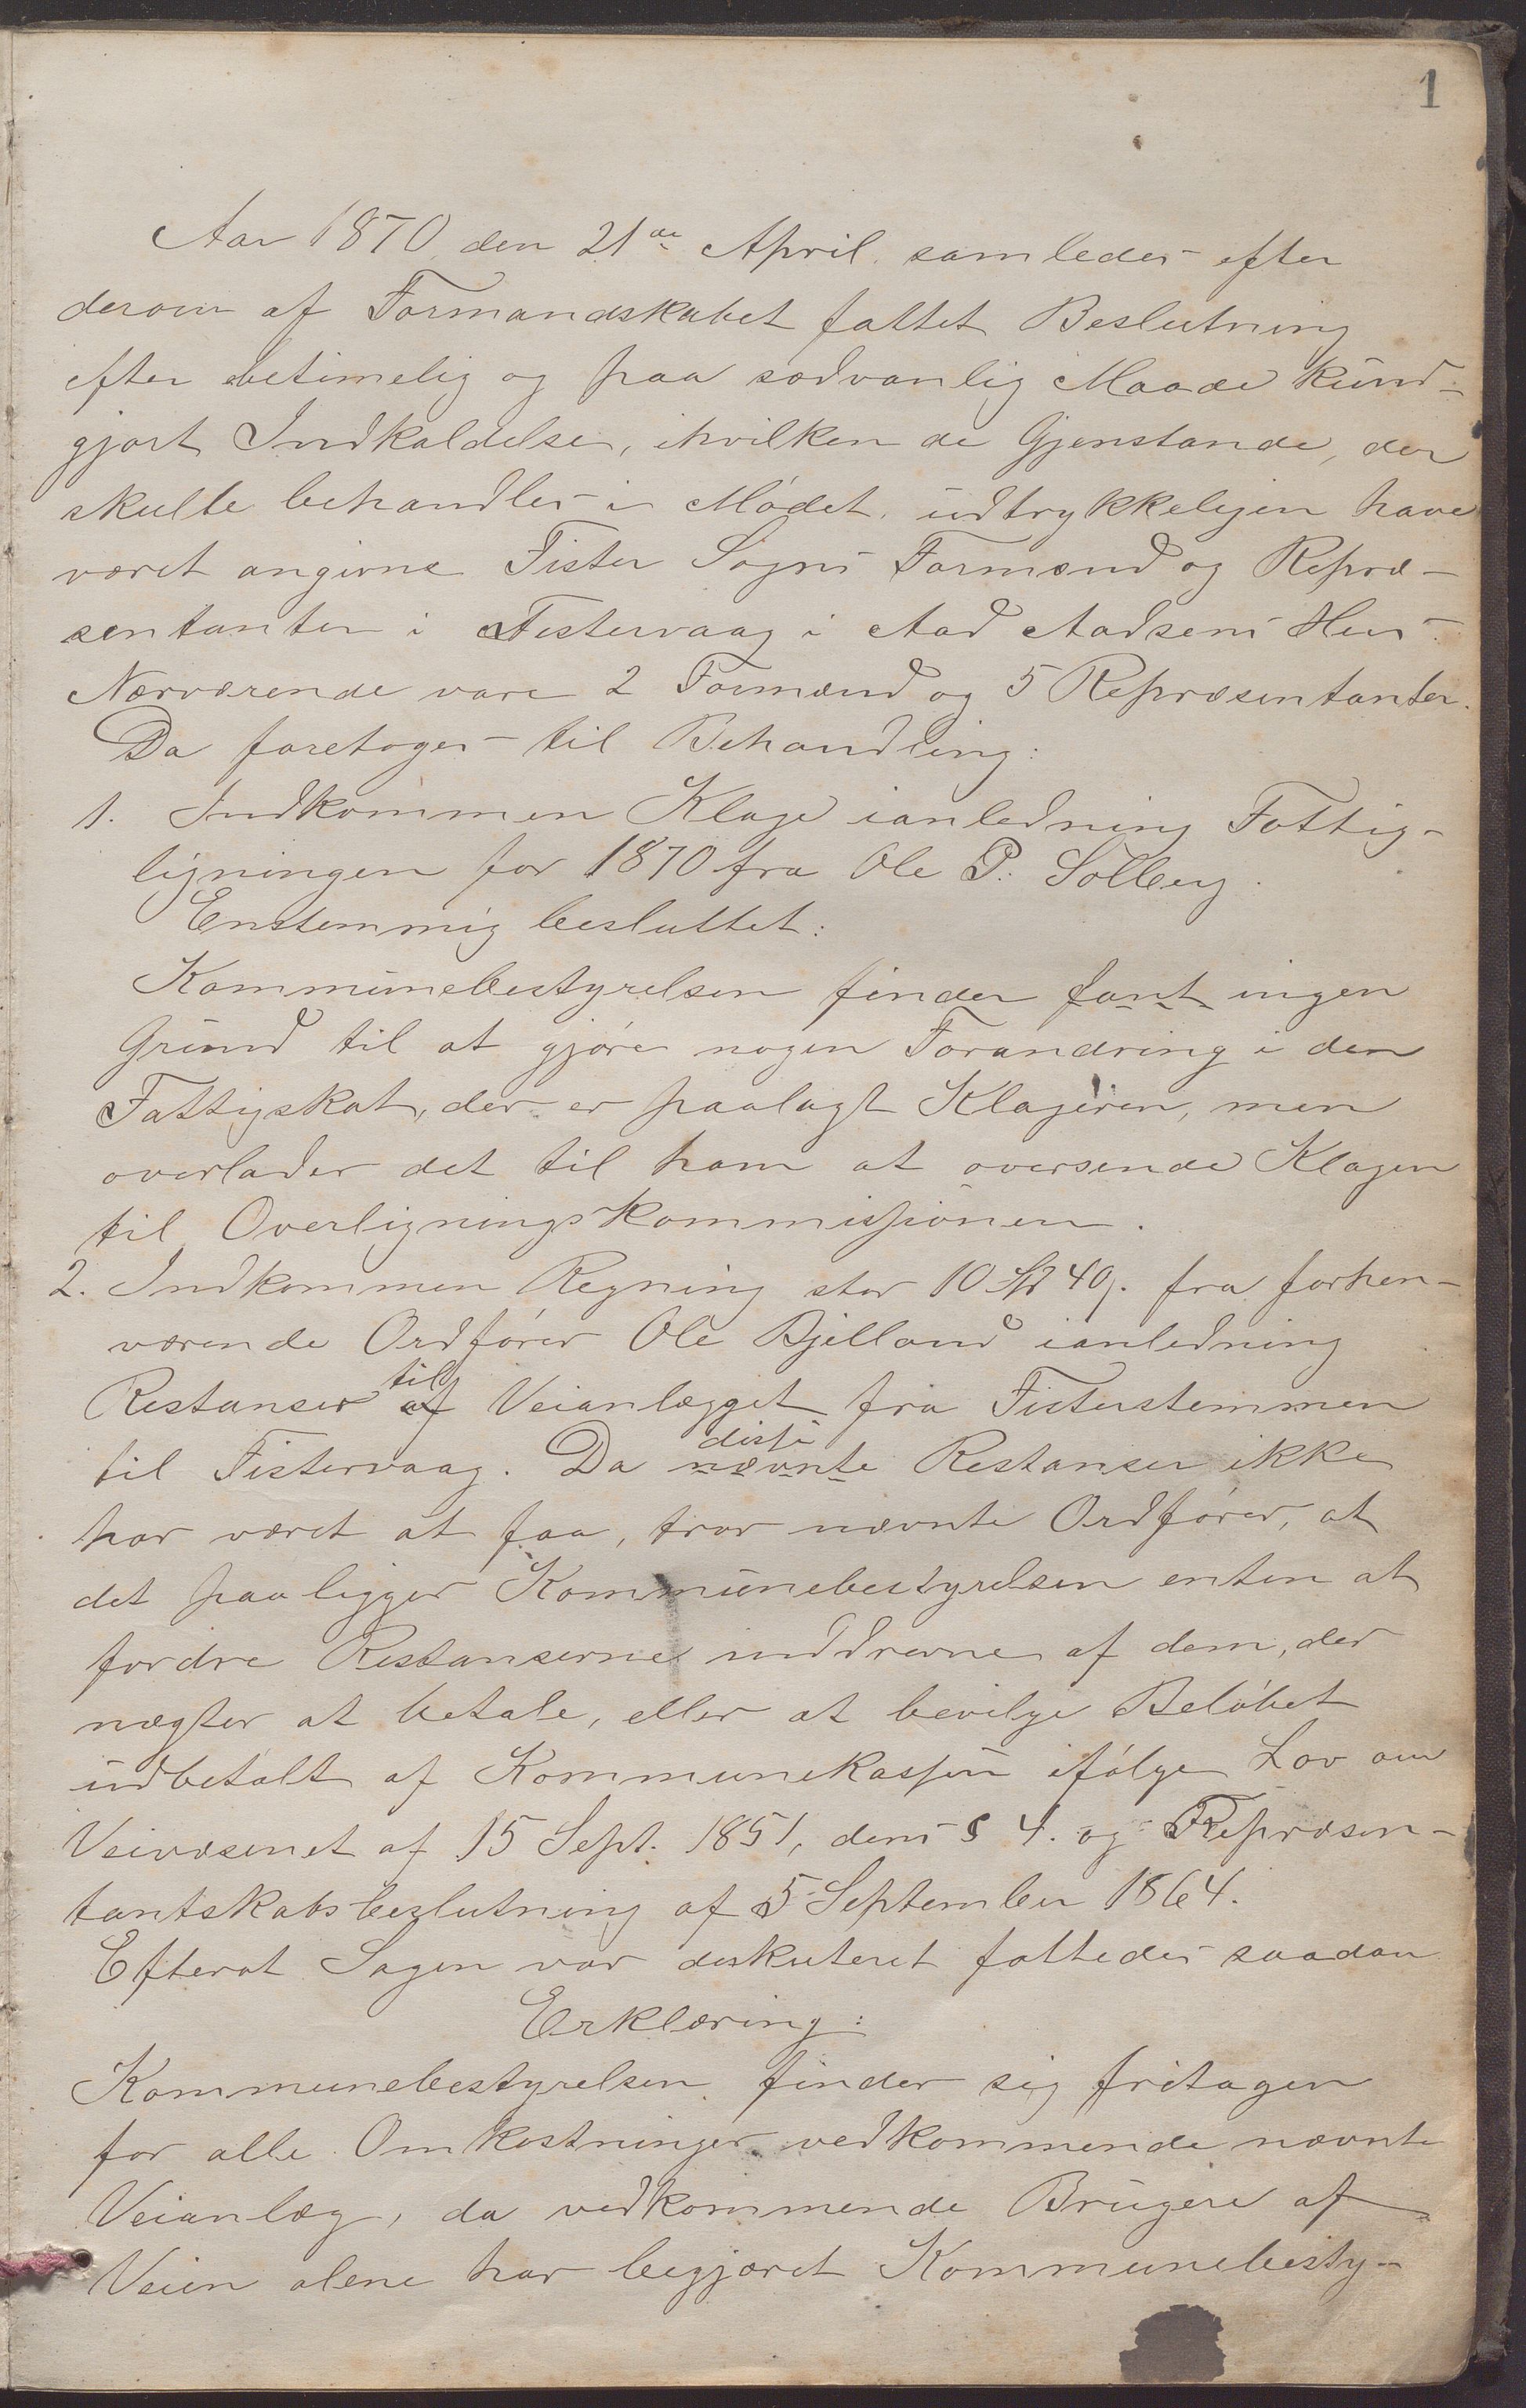 1
Aar 1870 den 21de April samledes efter
derom af Formandskabet fattet Beslutning
efter betimelig og paa sædvanlig Maade kund-
gjort Indkaldelse, ihvilken de Gjenstande, der
skulle behandles i Mødet udtrykkeligen have
været angivne Fister Sogns Formænd og Repræ-
sentanter i Fistervaag i Aad Aadsens Hus.
Nærværende vare 2 Formænd og 5 Repræsentanter.
Da foretoges til Behandling:
1. Indkommen Klage ianledning Fattig-
ligningen for 1870 fra Ole P. Solberg.
Enstemmig besluttet:
Kommunebestyrelsen finder fant ingen
Grund til at gjøre nogen Forandring i den
Fattigskat, der er paalagt Klageren, men
overlader det til ham at oversende Klagen
til Overligningskommissionen.
2. Indkommen Regning stor 10 Spd 40 fra forhen-
værende Ordfører Ole Bjelland ianledning
Restanser til af Veianlægget fra Fisterstemmen
til Fistervaag. Da disse nævnte Restanser ikke
har været at faa, tror nævnte Ordfører, at
det paaligger Kommunebestyrelsen enten at
fordre Restanserne inddrevne af dem, der
nægter at betale, eller at bevilge Beløbet
udbetalt af Kommunekassen ifølge Lov om
Veivæsenet af 15 Sept. 1851, dens § 4. og Repræsen-
tantskabsbeslutning af 5 September 1864.
Efterat Sagen var deskuteret fattedes saadan
Erklæring:
Kommunebestyrelsen finder sig fritagen
for alle Omkostninger vedkommende nævnte
Veianlæg, da vedkommende Brugere af
Veien alene har begjæret Kommunebesty-